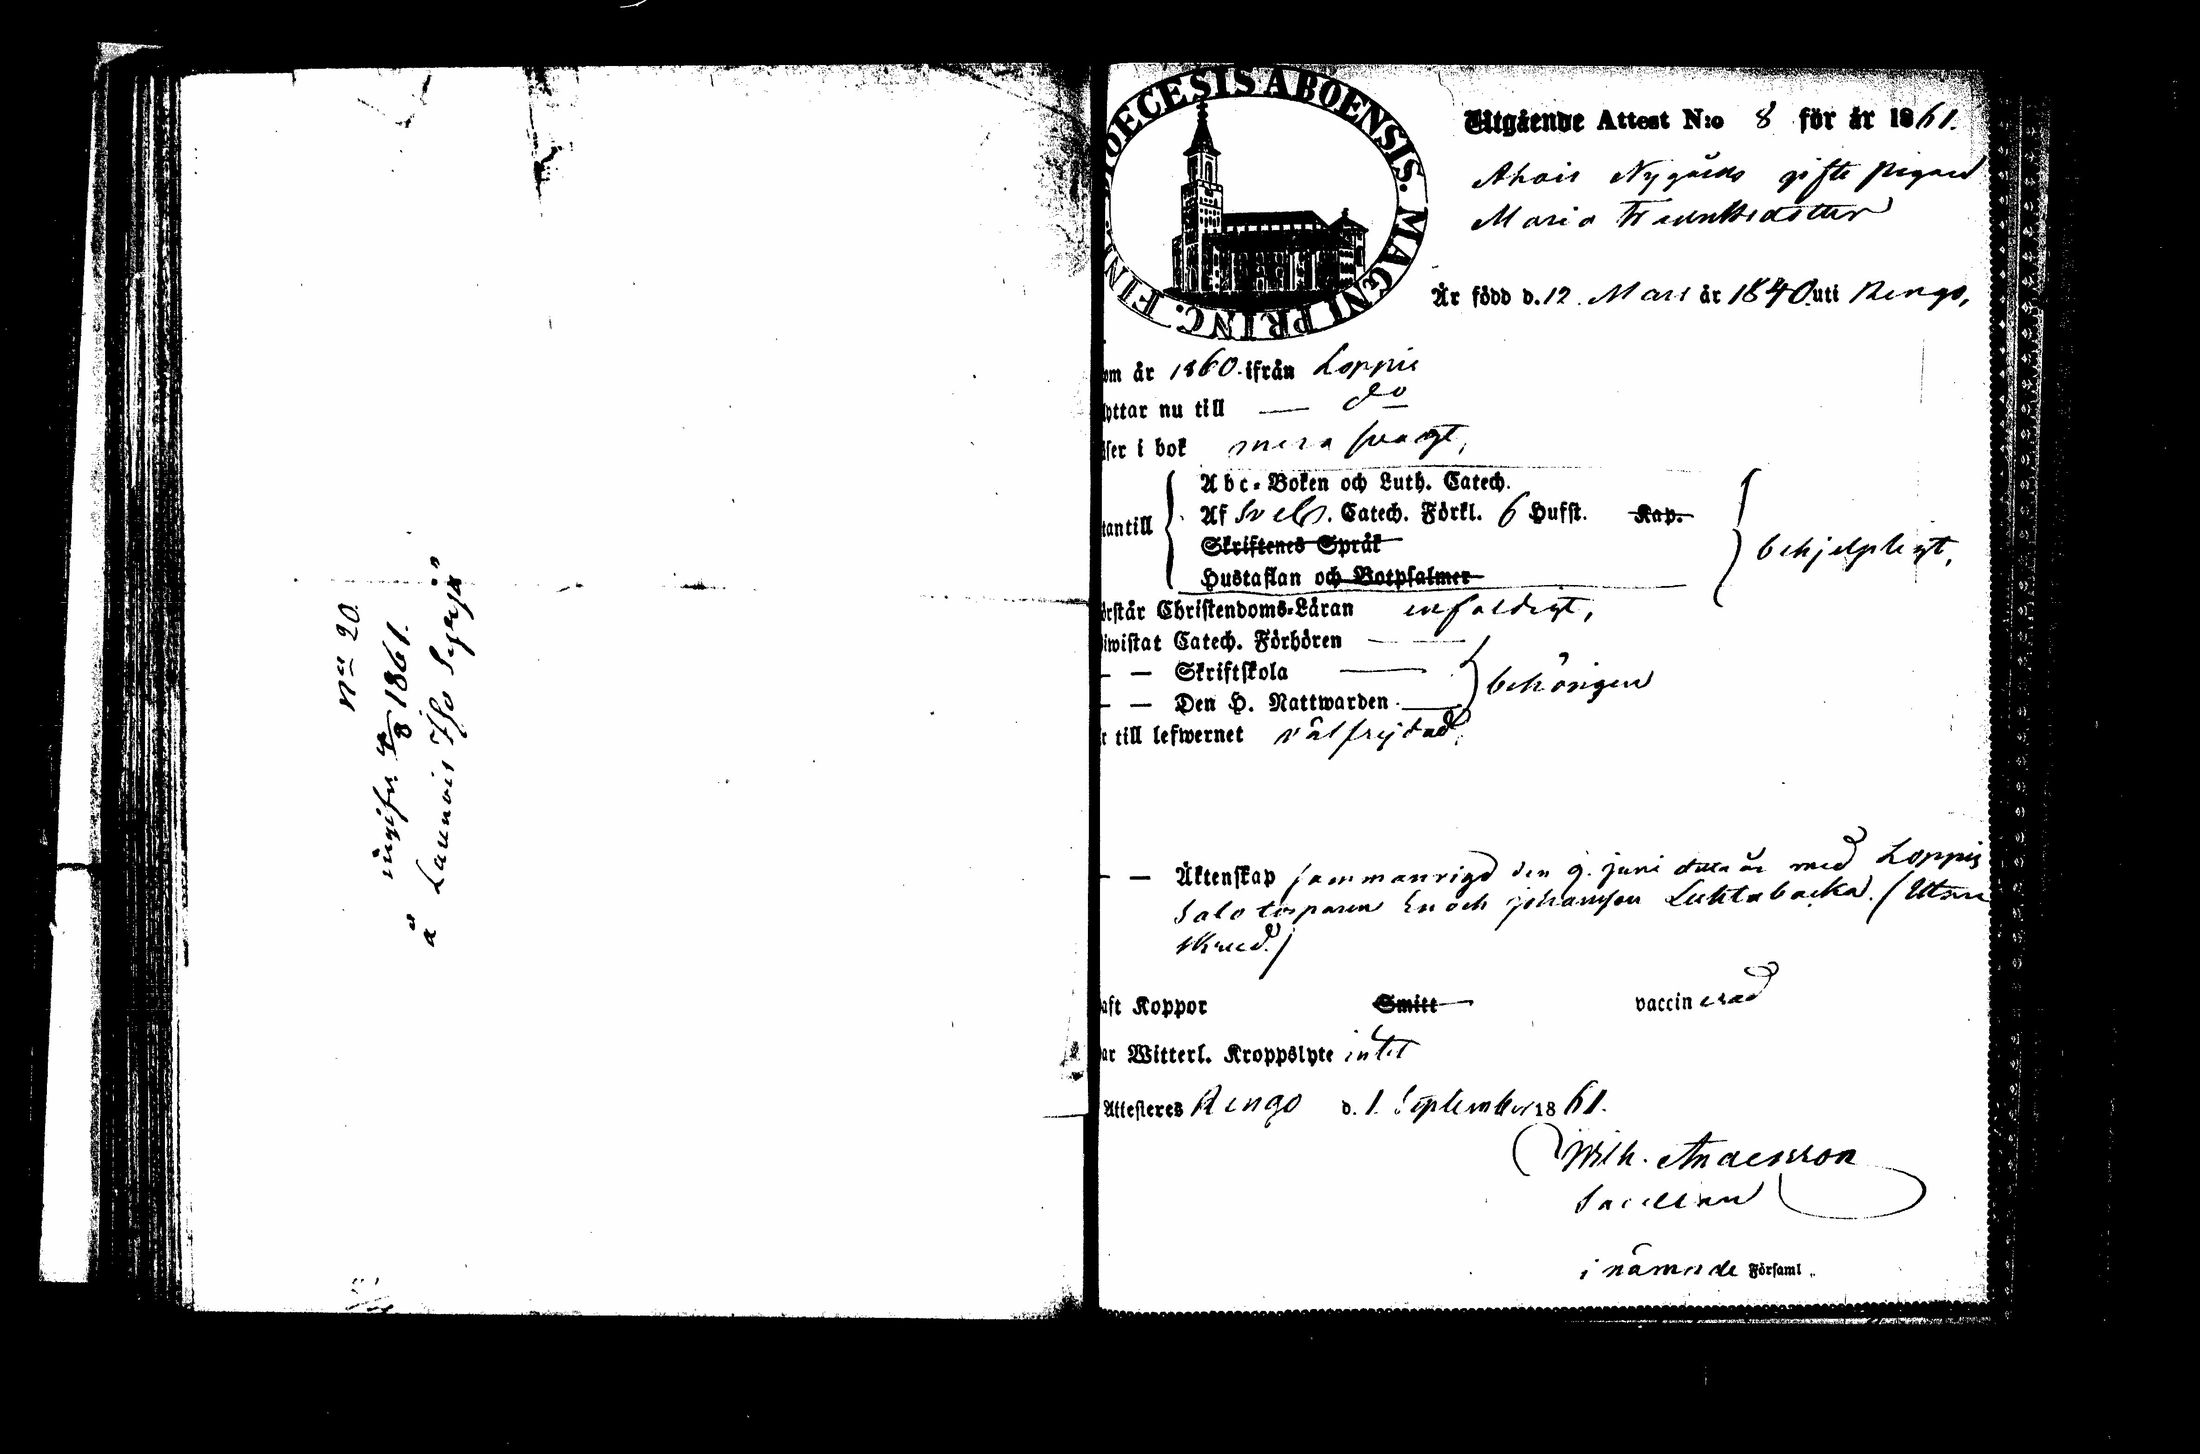 N:o 20.
ingifv. 4/8 1861.
å Launois Iso Seppä
DIOECESIS ABOENSIS. MAGNI PRINC. FINL.
Utgående Attest N:o 8 för år 1861.
Ahois Nygårds gifte pigan
Maria Fredriksdotter
Är född d. 12 Mars år 1840 uti Rengo,
om år 1860. ifrån Loppis
yttar nu till — do
äser i bok mera svagt,
Abc-Boken och Luth. Catech.
Af Sveb. Catech. Förkl. 6 Hufst. Kap.
tantill
Skriftenes Språk
behjelpligt,
Hustaflan och Botpsalmer
örstår Christendoms-Läran enfaldigt,
iwistat Catech. Förhören —
— — Skriftskola —
behörigen
— — Den H. Nattwarden —
r till lefwernet välfrejdad,
— — Äktenskap sammanvigd den 9. juni detta år med Loppis
Salo torparen Enoch Johansson Luhtabacka. (Utan
skned.)
aft Koppor Smitt vaccinerad
ar Witterl. Kroppslyte intet
Attesteres Rengo d. 1 September 1861.
Wilh. Andersson
Sacellan
i nämnde Församl.